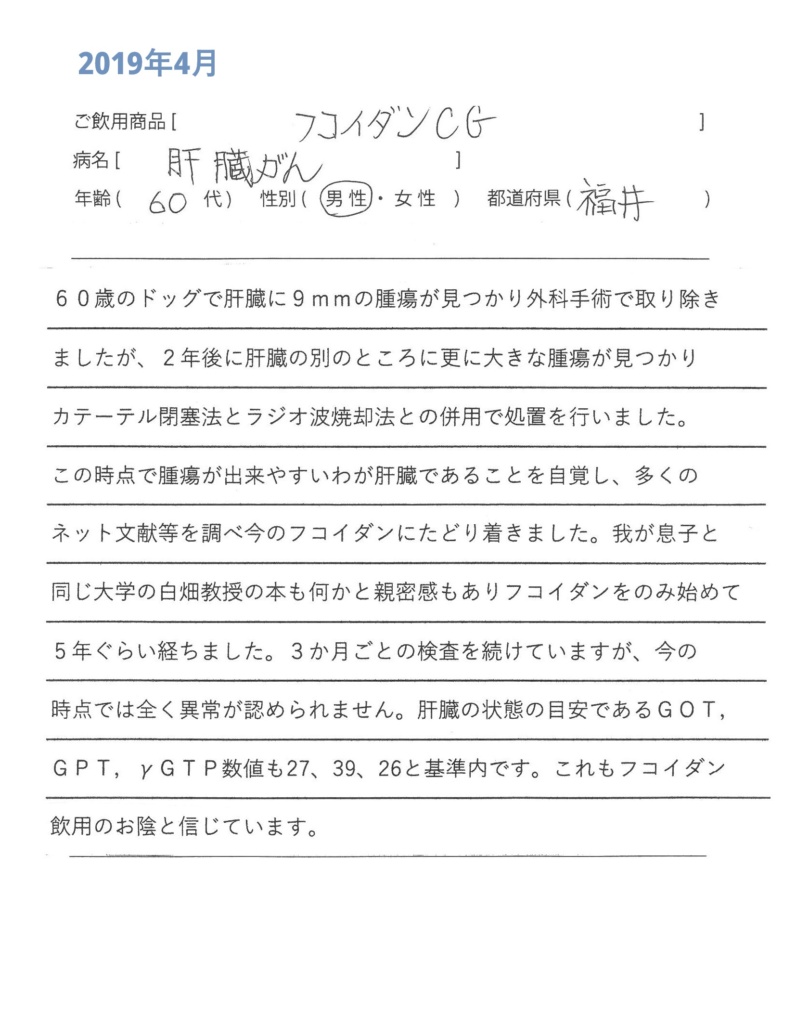 2019年4月
ご飲用商品[ フコイダンCG ]
病名[ 肝臓がん ]
年齢( 60 代) 性別( 男性・女性 ) 都道府県( 福井 )
６０歳のドッグで肝臓に９ｍｍの腫瘍が見つかり外科手術で取り除き
ましたが、２年後に肝臓の別のところに更に大きな腫瘍が見つかり
カテーテル閉塞法とラジオ波焼却法との併用で処置を行いました。
この時点で腫瘍が出来やすいわが肝臓であることを自覚し、多くの
ネット文献等を調べ今のフコイダンにたどり着きました。我が息子と
同じ大学の白畑教授の本も何かと親密感もありフコイダンをのみ始めて
５年ぐらい経ちました。３か月ごとの検査を続けていますが、今の
時点では全く異常が認められません。肝臓の状態の目安であるＧＯＴ，
ＧＰＴ，γＧＴＰ数値も27、39、26と基準内です。これもフコイダン
飲用のお陰と信じています。